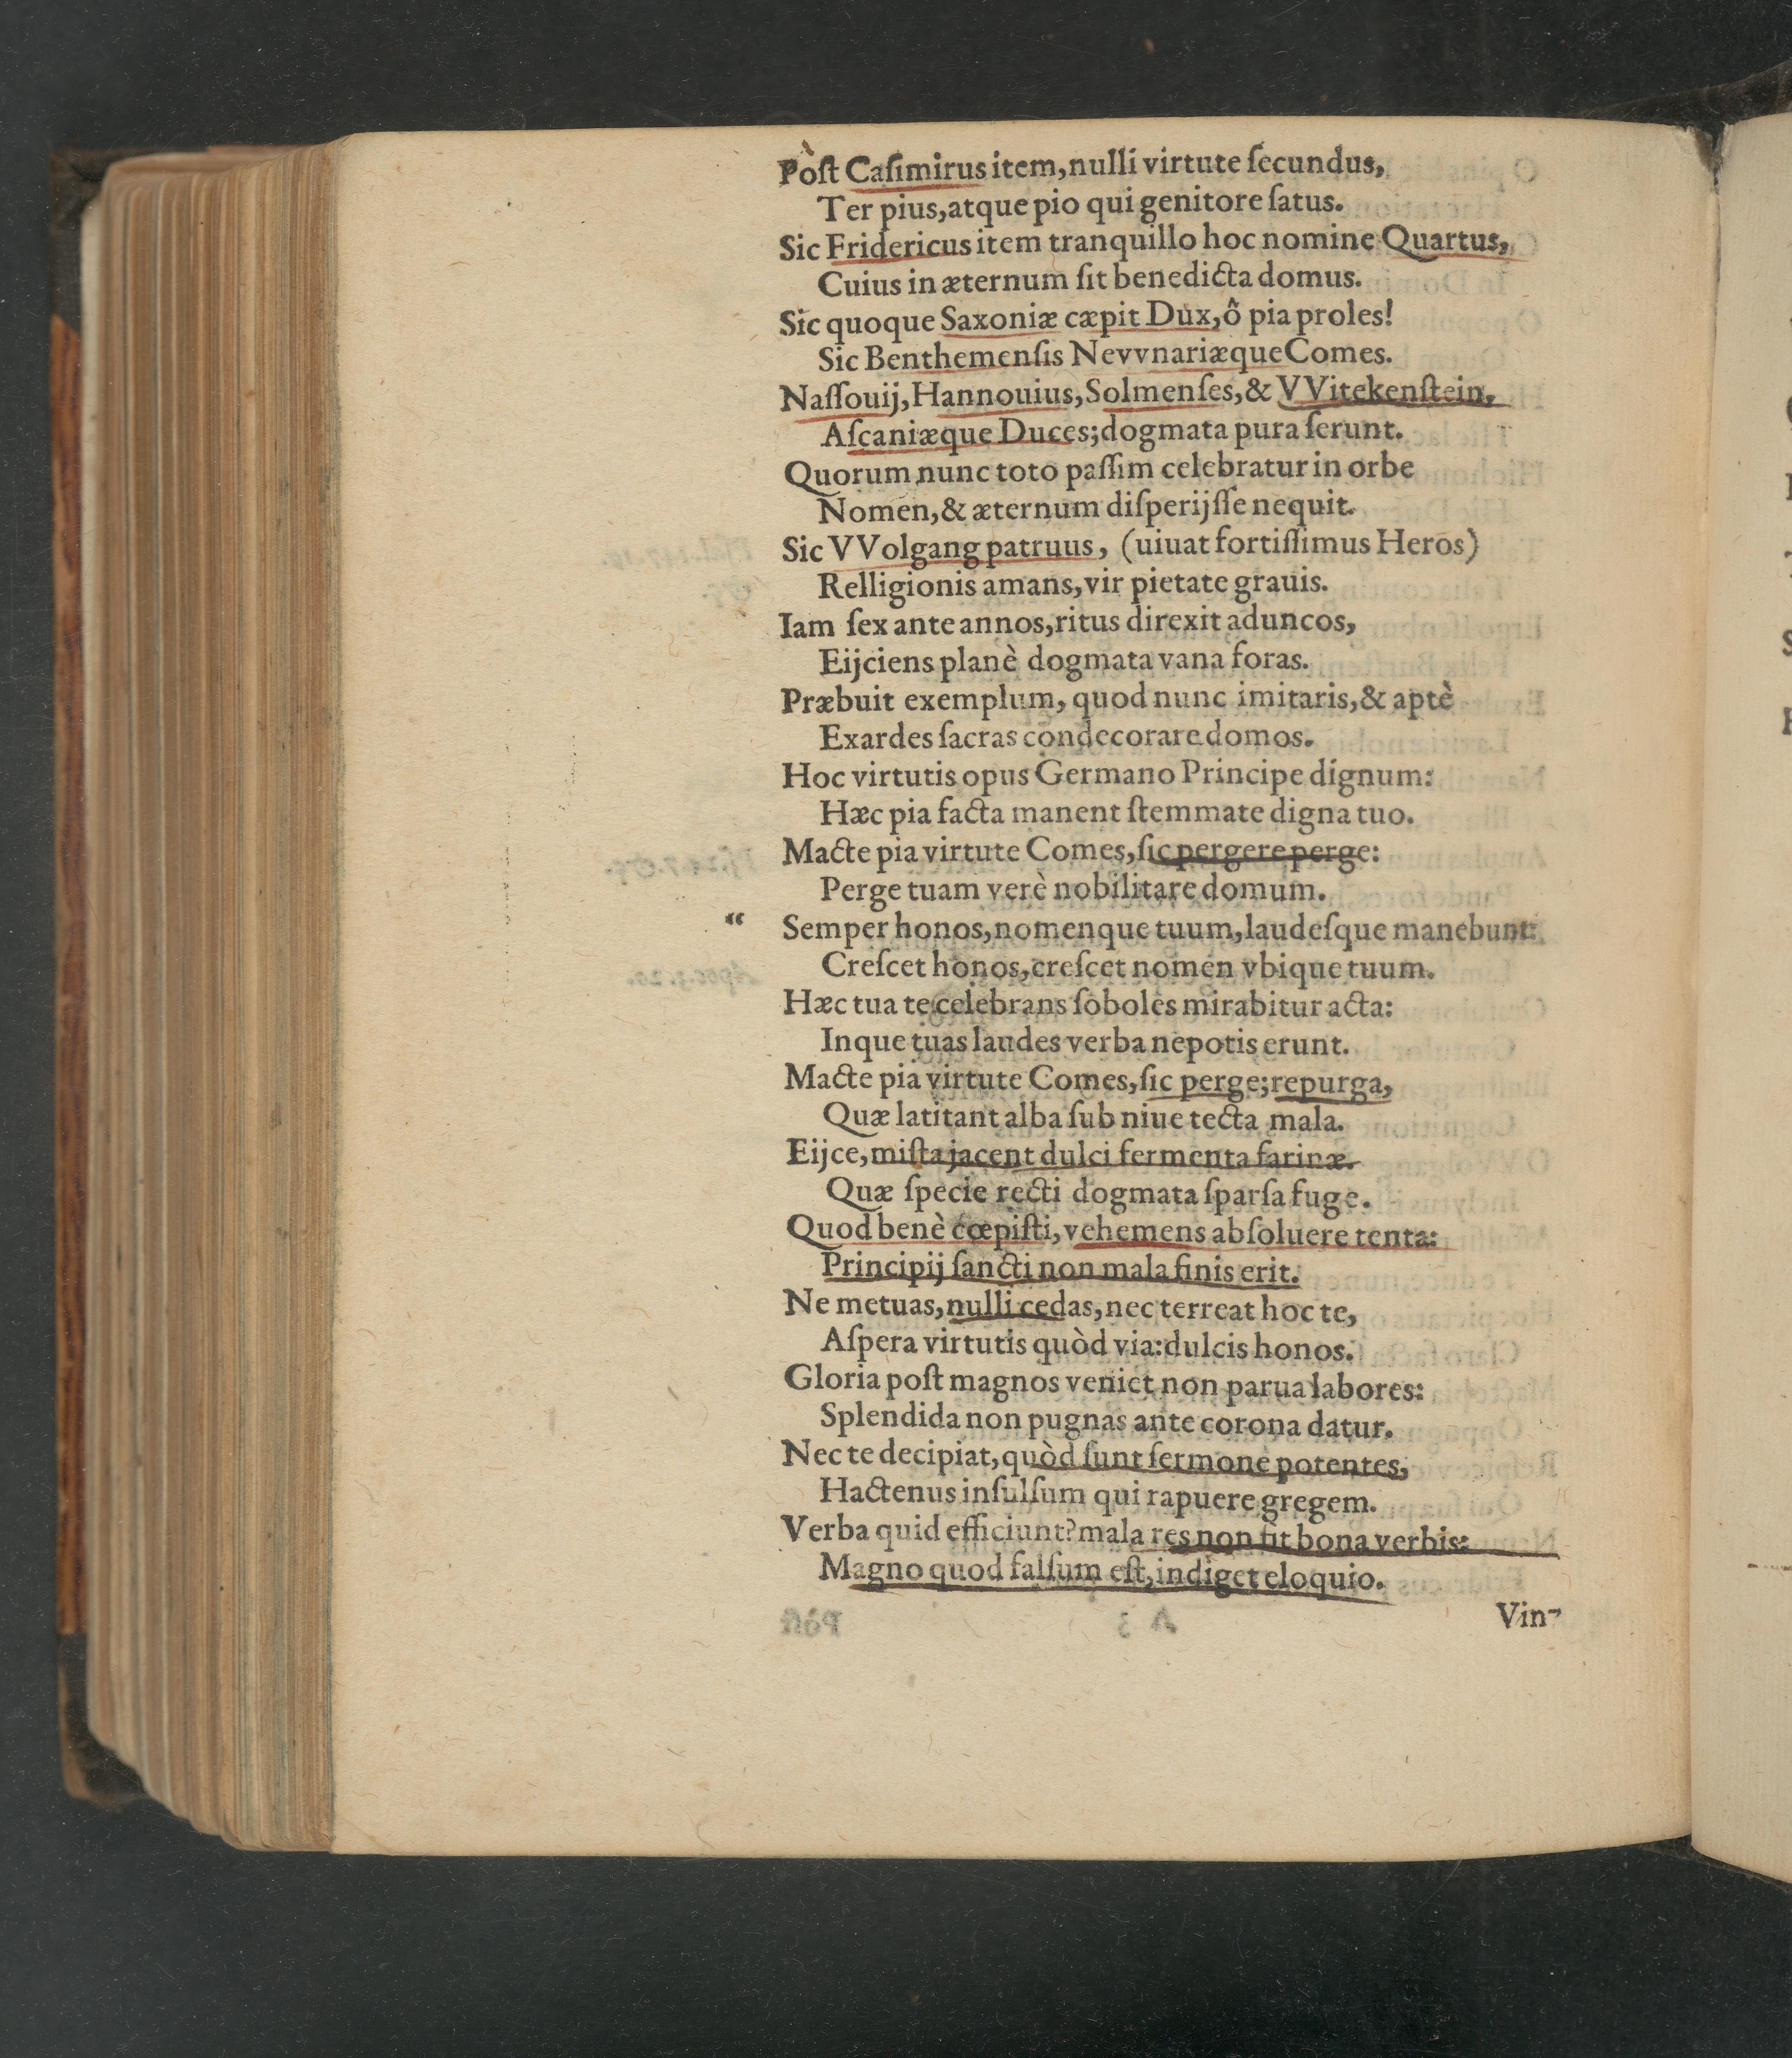 Pòſt Caſimirus item, nulli virtute ſecundus,
Ter pius, atque pio qui genitore ſatus.
Sic Fridericus item tranquillo hoc nomine Quartus,
Cuius in æternum ſit benedicta domus.
Sic quoque Saxoniæ cæpit Dux, ô pia proles!
Sic Benthemenſis Nevvnariæque Comes.
Naſſouij, Hannouius, Solmenſes, & VVitekenſtein,
Aſcaniæque Duces; dogmata pura ferunt.
Quorum nunc toto paſſim celebratur in orbe
Nomen, & æternum diſperijſſe nequit.
Sic VVolgang patruus, (uiuat fortiſſimus Heros)
Relligionis amans, vir pietate grauis.
Iam ſex ante annos, ritus direxit aduncos,
Eijciens planè dogmata vana foras.
Præbuit exemplum, quod nunc imitaris, & aptè
Exardes ſacras condecorare domos.
Hoc virtutis opus Germano Principe dignum:
Hæc pia facta manent ſtemmate digna tuo.
Macte pia virtute Comes, ſic pergere perge:
Perge tuam verè nobilitare domum.
“ Semper honos, nomenque tuum, laudeſque manebunt:
Creſcet honos, creſcet nomen vbique tuum.
Hæc tua te celebrans ſoboles mirabitur acta:
Inque tuas laudes verba nepotis erunt.
Macte pia virtute Comes, ſic perge; repurga,
Quæ latitant alba ſub niue tecta mala.
Eijce, miſta jacent dulci fermenta farinæ.
Quæ ſpecie recti dogmata ſparſa fuge.
Quod benè cœpiſti, vehemens abſoluere tenta:
Principij ſancti non mala finis erit.
Ne metuas, nulli cedas, nec terreat hoc te,
Aſpera virtutis quòd via: dulcis honos.
Gloria poſt magnos veniet non parua labores:
Splendida non pugnas ante corona datur.
Nec te decipiat, quòd ſunt ſermone potentes,
Hactenus inſulſum qui rapuere gregem.
Verba quid efficiunt? mala res non fit bona verbis:
Magno quod falſum eſt, indiget eloquio.
Vin-